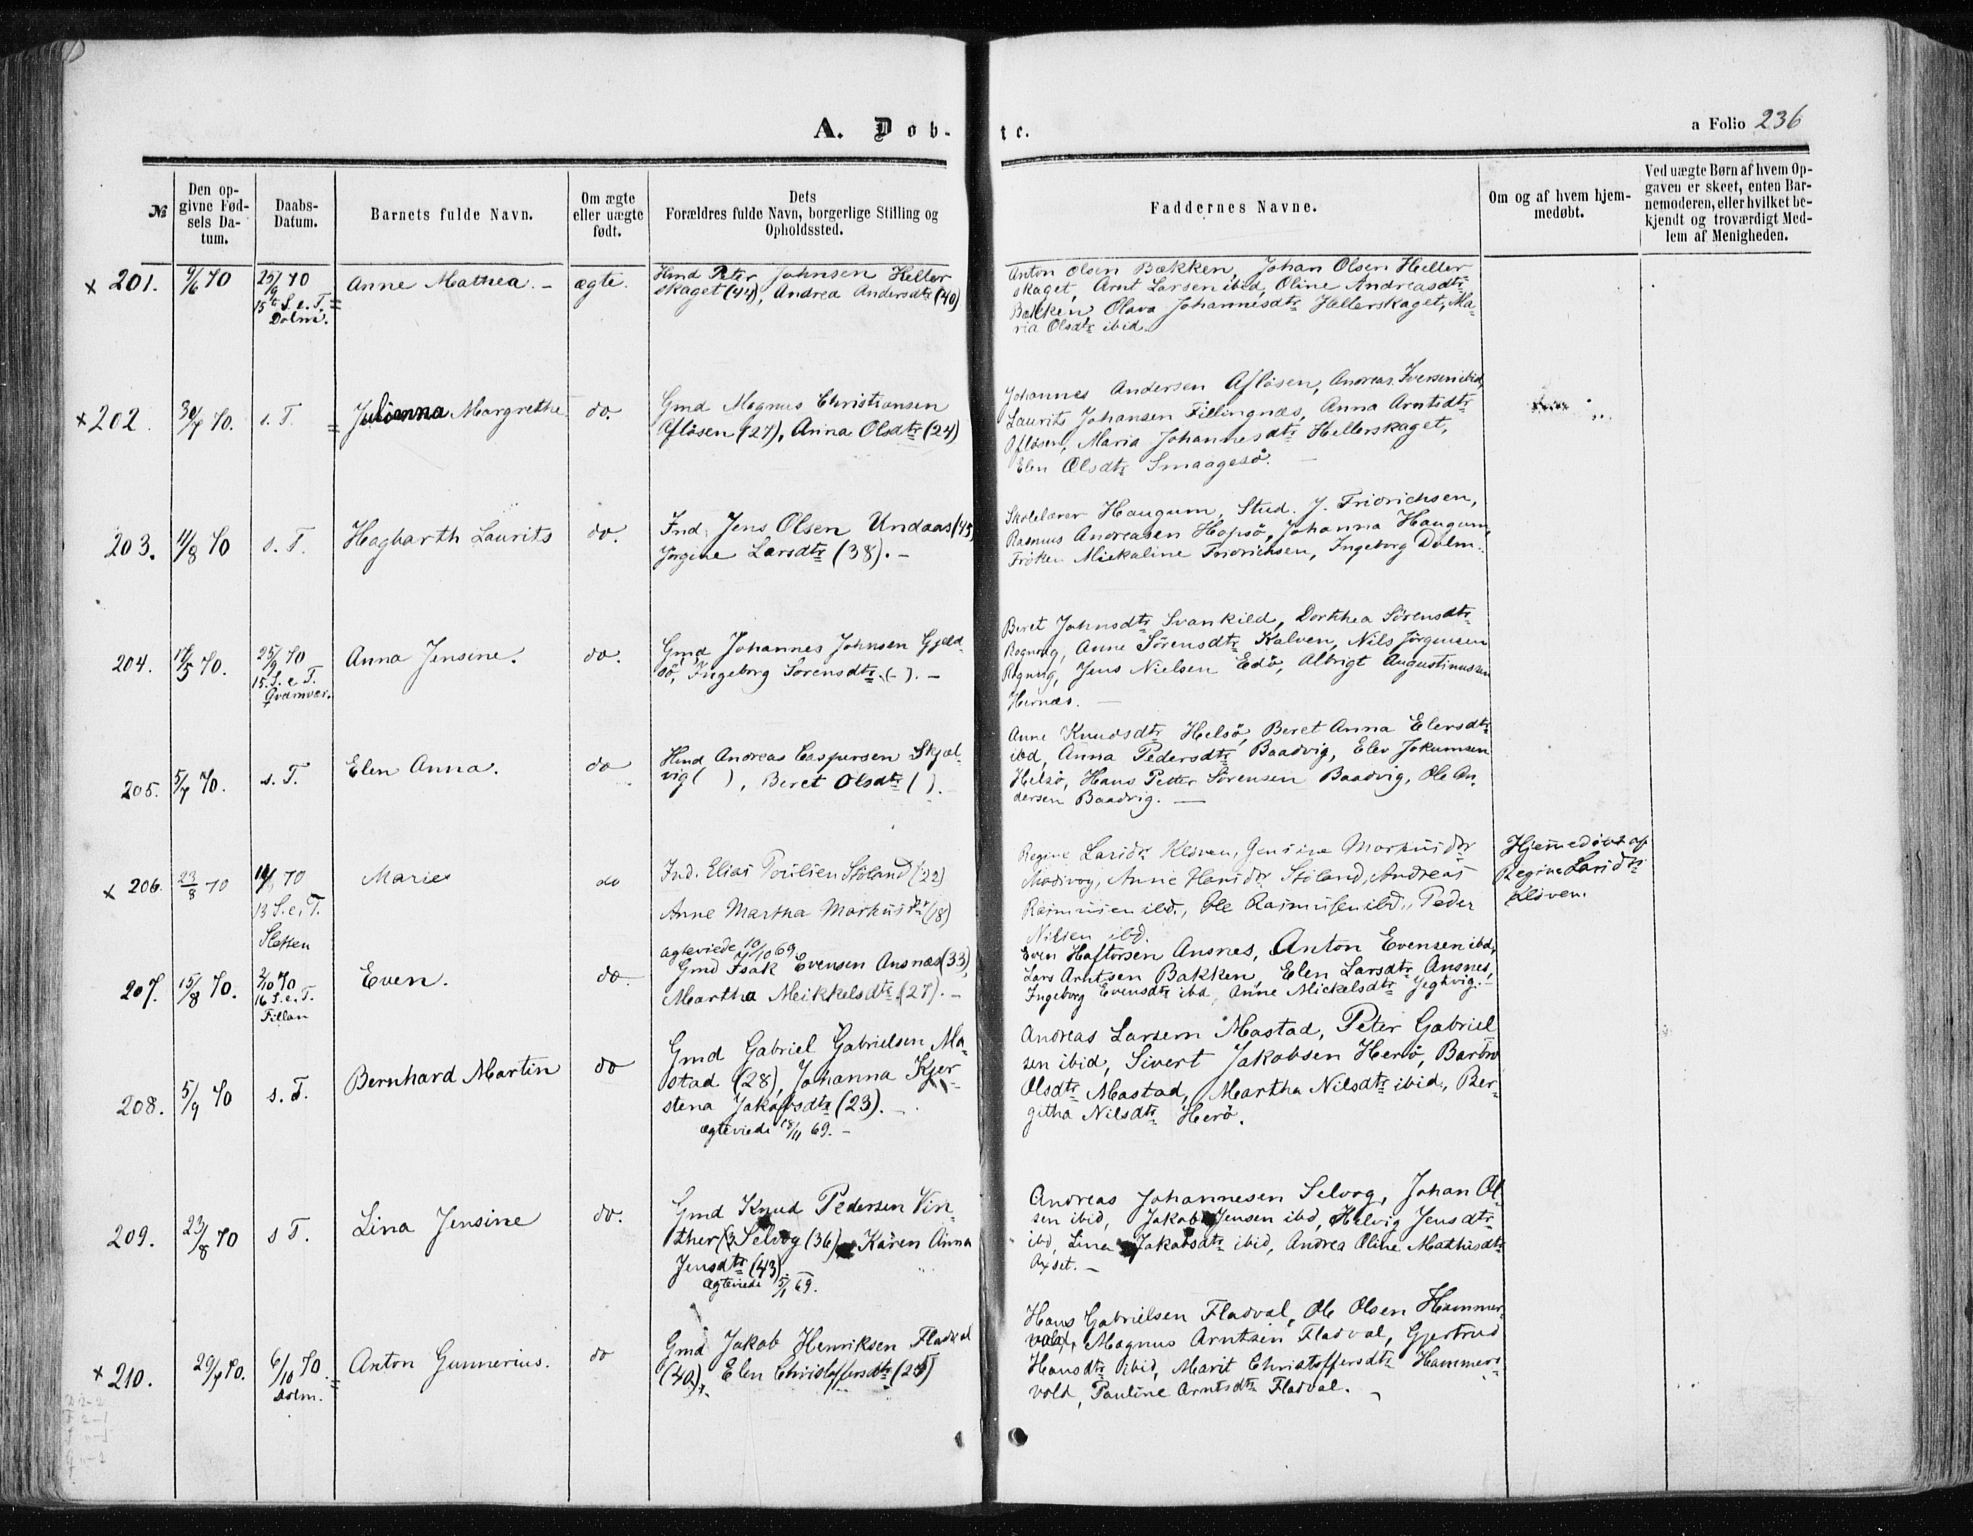 A. Døb-
te.
a Folio 236
№
Den op-
givne Fød-
sels Da-
tum.
Daabs-
Datum.
Barnets fulde Navn.
Om ægte
eller uægte
født.
Dets
Forældres fulde Navn, borgerlige Stilling og
Opholdssted.
Faddernes Navne.
Om og af hvem hjem-
medøbt.
Ved uægte Børn af hvem Op-
gaven er skeet, enten Bar-
nemoderen, eller hvilket be-
kjendt og troværdigt Med-
lem af Menigheden.
× 201.
9/6 70
25/9 70
15de S. e. T.
Dolmø.
Anne Mathea. -
ægte.
Hmd Peter Johnsen Heller
skaget (44), Andrea Andersdtr (40)
Anton Olsen Bækken, Johan Olsen Heller-
skaget, Arnt Larsen ibid, Oline Andreasdtr
Bækken, Olava Johannesdtr Hellerskaget, Ma-
ria Olsdtr ibid.
× 202.
30/7 70.
s. T.
Julianna Margrethe
do.
Gmd Magnus Christiansen
Afløsen (27), Anna Olsdtr (24)
Johannes Andersen Afløsen, Andreas Iversen ibid,
Laurits Johansen Fillingnæs, Anna Arntsdtr
Afløsen, Maria Johannesdtr Hellerskaget,
Elen Olsdtr Smaagesø. -
203.
11/8 70
s. T.
Hagbarth Laurits
do.
Ind. Jens Olsen Undaas (45)
Jørgine Larsdtr (38). -
Skolelærer Haugum, Stud. J. Fridrichsen,
Rasmus Andreasen Hopsø, Johanna Haugum,
Frøken Mickaline Fridrichsen, Ingeborg Dolm.
204.
17/5 70.
25/9 70
15. S. e. T.
Qvænvær.
Anna Jensine.
do.
Gmd Johannes Johnsen Gjeld-
sø, Ingeborg Sørensdtr (-). -
Beret Johnsdtr Svankild, Dorthea Sørensdtr
Røgnvg, Anne Sørensdtr Kalven, Nils Jørgensen
Røgnvg, Jens Nielsen Edø, Albrigt Augustinussen
Hernæs. -
205.
5/7 70.
s. T.
Elen Anna.
do
Hmd Andreas Caspersen Skjæl-
vig ( ), Beret Olsdtr ( ).
Anne Knudsdtr Helsø, Beret Anna Elersdtr
ibd, Anna Pedersdtr Baadvig, Elev Jokumsen
Helsø, Hans Petter Sørensen Baadvig, Ole An-
dersen Baadvig. -
× 206.
23/8 70
70
13 S. e. T.
Sletten
Marie
do
Ind. Elias Poulsen Støland (22)
Anne Martha Markusdtr (18)
Ægteviede 10/10 69
Regine Larsdtr Kløven, Jensine Markusdtr
Anne Hansdtr Støland, Andreas
Rasmusen ibd., Ole Rasmusen ibd., Peder
Nilsen ibd.
Hjemmedøbt af
Regine Larsdtr
Kløven.
207.
15/8 70.
2/10 70
16 S. e. T.
Fillan
Even.
do.
Gmd Isak Evensen Ansnæs (33),
Martha Mikkelsdtr (27). -
Even Haftorsen Ansnes, Anton Evensen ibd,
Lars Arntsen Bakken, Elen Larsdtr Ansnes,
Ingeborg Evensdtr ibd, Anne Mickelsdtr Jegtvig. -
208.
5/9 70
s. T.
Bernhard Martin
do
Gmd Gabriel Gabrielsen Ma-
stad (28), Johanna Kjer-
stena Jakobsdtr (23). -
Ægteviede 18/11 69. -
Andreas Larsern Mastad, Peter Gabriel
sen ibid, Sivert Jakobsen Herø, Barbro
Olsdtr Mastad, Martha Nilsdtr ibid, Ber-
githa Nilsdtr Herø.
209.
23/8 70
s T.
Lina Jensine
do.
Gmd Knud Pedersen Vin-
ther Selvog (36), Karen Anna
Jensdtr (43).
Ægteviede 5/1 69.
Andreas Johannesen Selvog, Johan Ol-
sen ibid, Jakob Jensen ibd, Helvig Jensdtr
ibd, Lina Jakobsdtr ibid, Andrea Oline Mathisdtr
Axset. -
× 210.
29/7 70.
6/10 70.
Dolm.
Anton Gunnerius.
do
Gmd Jakob Henriksen Fladval
(40), Elen Christoffersdtr (25)
Hans Gabrielsen Fladval, Ole Olsen Hammer-
vold, Magnus Arntsen Fladval, Gjertrud
Hansdtr ibid, Marit Christoffersdtr Hammer-
vold, Pauline Arntsdtr Fladval. -